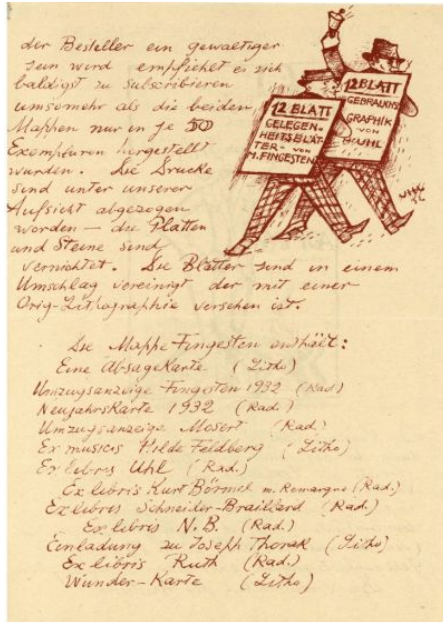 der Besteller ein gewaltiger
sein wird empfiehlt es sich
baldigst zu subscribieren
umsomehr als die beiden
Mappen nur in je 50
Exemplaren hergestellt
wurden. Die Drucke
sind unter unserer
Aufsicht abgezogen
worden – die Platten
und Steine sind
vernichtet. Die Blätter sind in einem
Umschlag vereinigt der mit einer
Orig-Lithographie versehen ist.
12 BLATT
GELEGEN-
HEITSBLÄT-
TER - VON
M. FINGESTEN
12 BLATT
GEBRAUCHS
GRAPHIK
VON
UHL
32
Die Mappe Fingesten enthält:
Eine Absagekarte (Litho)
Umzugsanzeige Fingesten 1932 (Rad)
Neujahrskarte 1932 (Rad.)
Umzugsanzeige Mosert (Rad.)
Ex musicis Hilde Feldberg (Litho)
Ex libris Uhl (Rad.)
Ex libris Kurt Börmel m. Remarque (Rad.)
Ex libris Schneider-Brailliard (Rad.)
Ex libris N.B (Rad.)
Einladung zu Joseph Thorak (Litho)
Ex libris Ruth (Rad.)
Wunder-Karte (Litho)